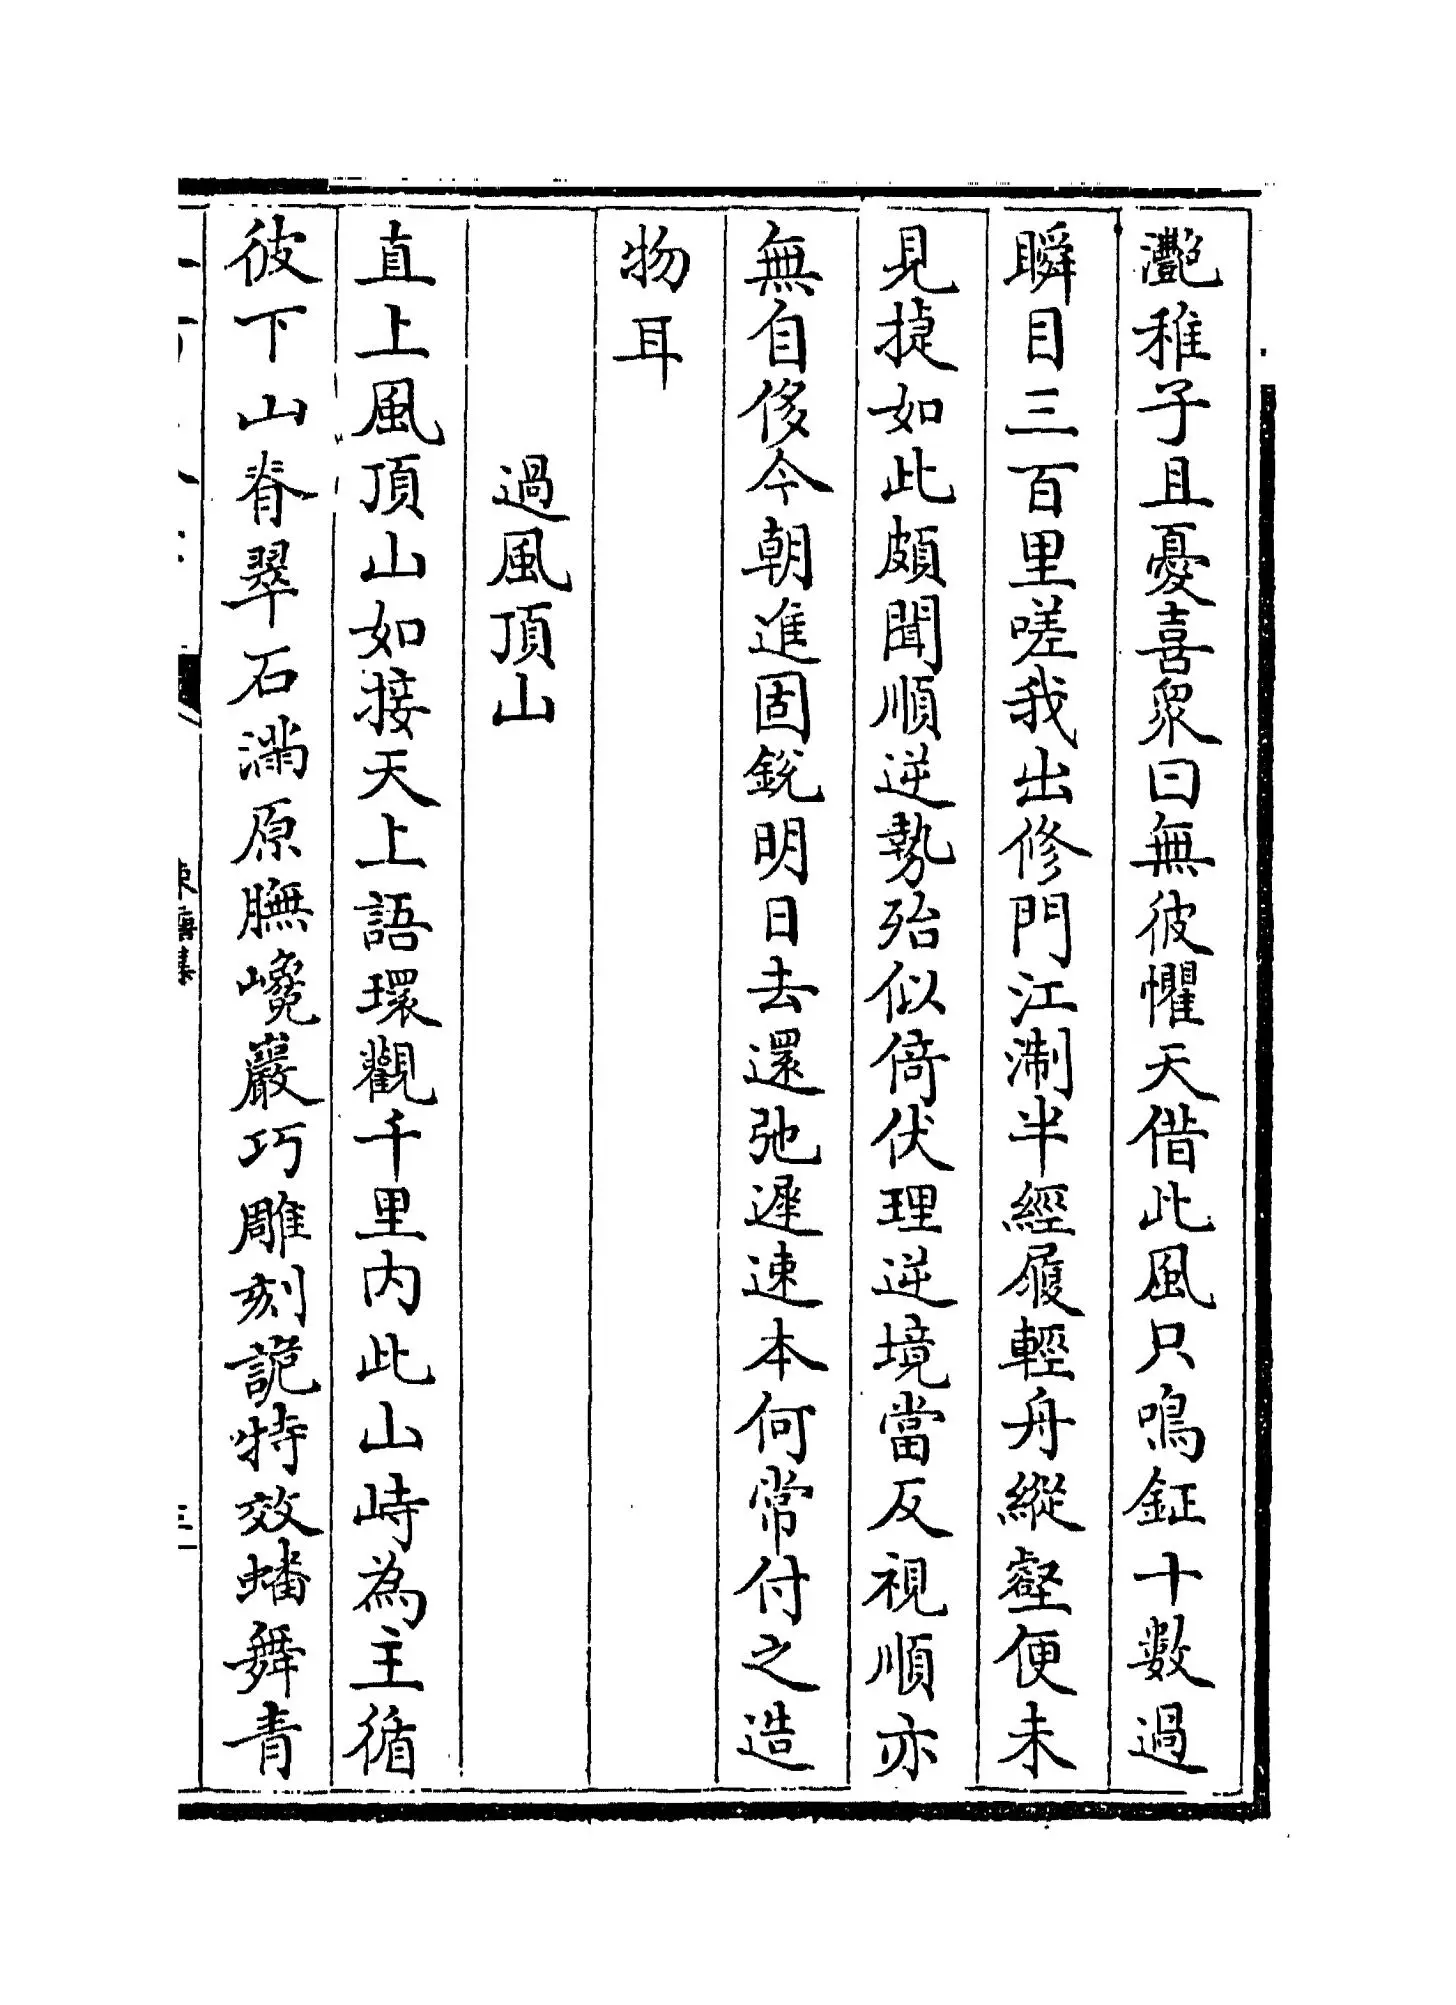 灔稚子且憂喜衆曰無彼懼天借此風只鳴鉦十數過
瞬目三百里嗟我出修門江淛半經履輕舟縱壑便未
見㨗如此頗聞順逆勢殆似倚伏理逆境當反視順亦
無自侈今朝進固銳明日去還弛遲速本何常付之造
物耳
過風頂山
直上風頂山如接天上語環觀千里内此山峙為主循
彼下山脊翠石滿原膴巉巖巧雕刻詭特效蟠舞青
東塘集
三